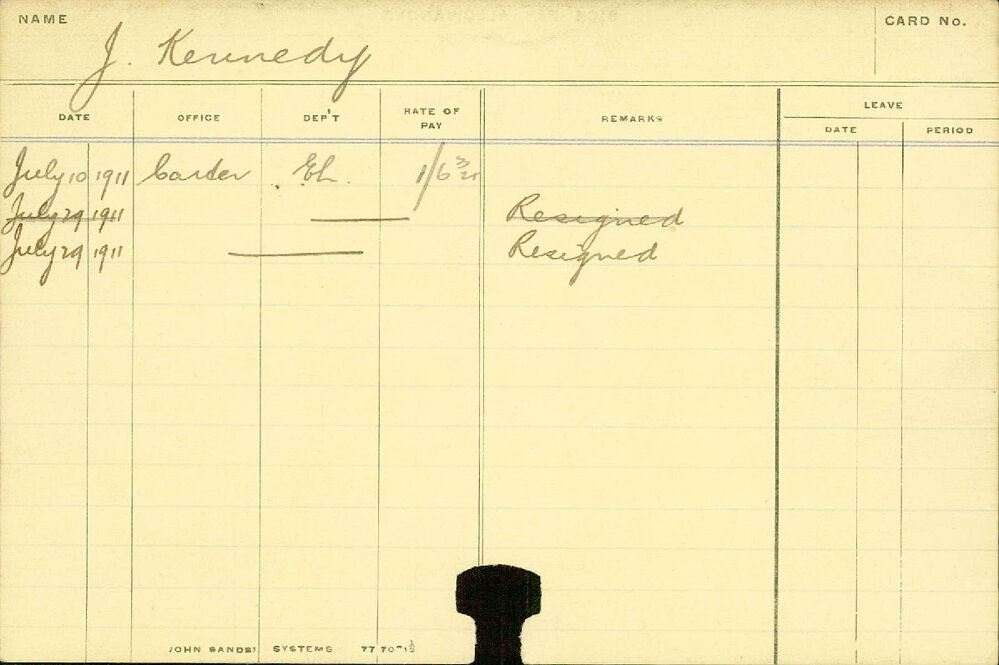 NAME J. Kennedy CARD No.
DATE OFFICE DEP'T RATE OF PAY REMARKS LEAVE
DATE PERIOD
July 10 1911 Carder Eh. 1/6 3/20
July 29 1911 Resigned
July 29 1911 Resigned
JOHN SANDS' SYSTEMS 77 70